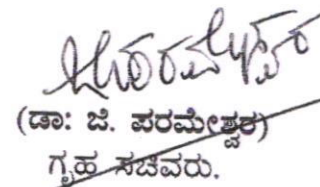 (ಡಾ: ಜಿ. ಪರಮೇಶ್ವರ)
ಗೃಹ ಸಚಿವರು.